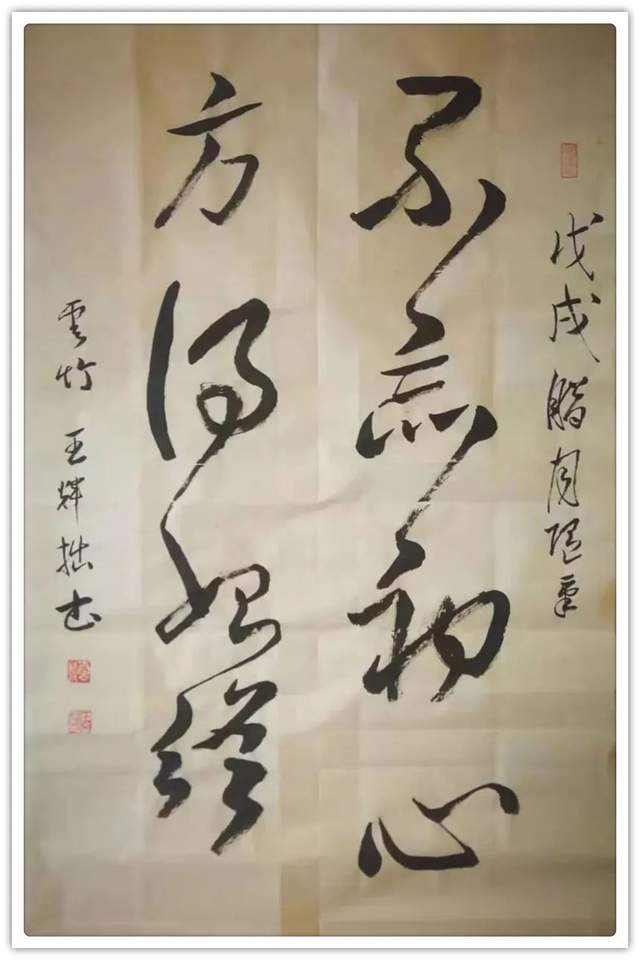 戊戌腊月
不忘初心
方得始终
雲竹 王辉拙书